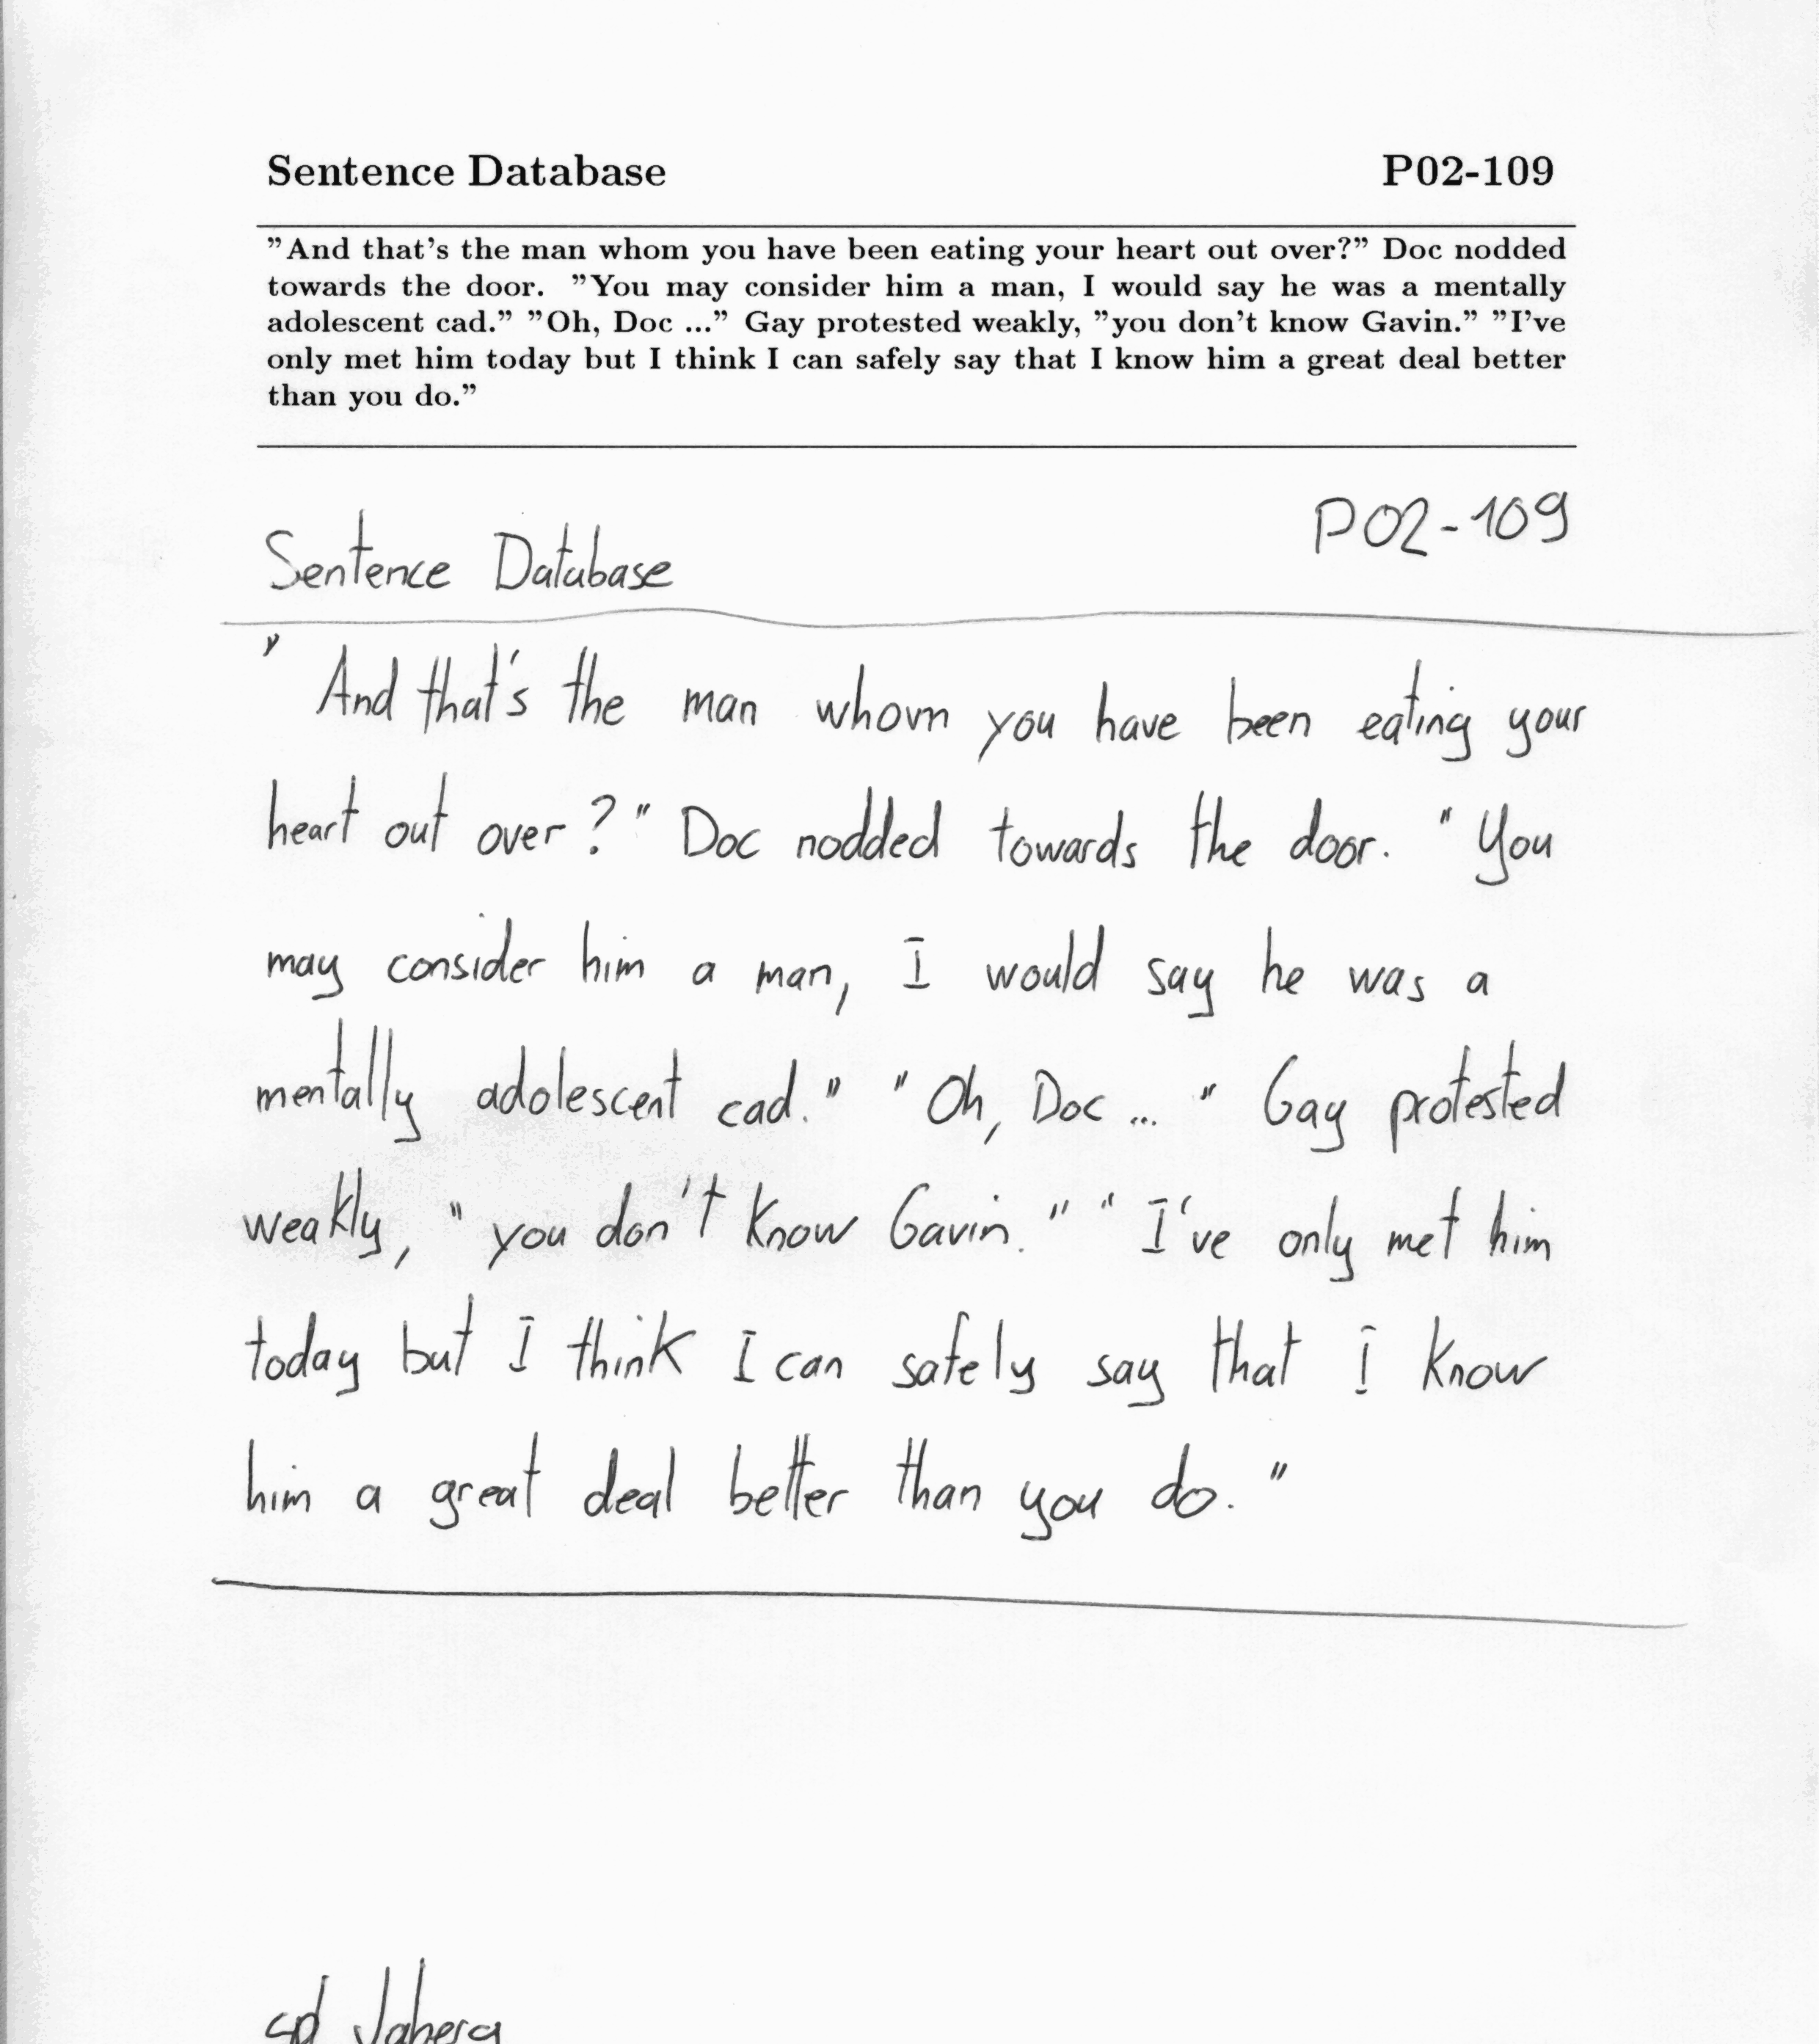 Sentence Database P02-109
"And that's the man whom you have been eating your heart out over?" Doc nodded
towards the door. "You may consider him a man, I would say he was a mentally
adolescent cad." "Oh, Doc ..." Gay protested weakly, "you don't know Gavin." "I've
only met him today but I think I can safely say that I know him a great deal better
than you do."
P02-109
Sentence Database
" And that's the man whom you have been eating your
heart out over?" Doc nodded towards the door. "You
may consider him a man, I would say he was a
mentally adolescent cad." "Oh, Doc ... " Gay protested
weakly, "you don't know Gavin." "I've only met him
today but I think I can safely say that I know
him a great deal better than you do."